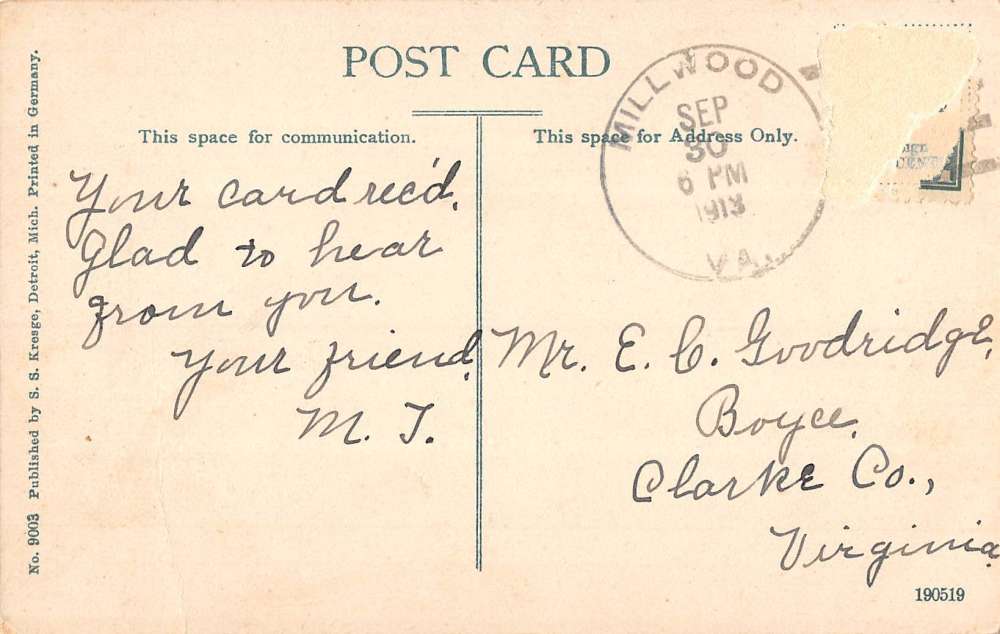 POST CARD
This space for communication.
This space for Address Only.
MILLWOOD
SEP
30
6 PM
1913
VA.
CENT
Your card rec'd.
Glad to hear
from you.
Your friend,
M. T.
Mr. E. C. Goodridge,
Boyce,
Clarke Co.,
Virginia
190519
No. 9003 Published by S. S. Kresge, Detroit, Mich. Printed in Germany.